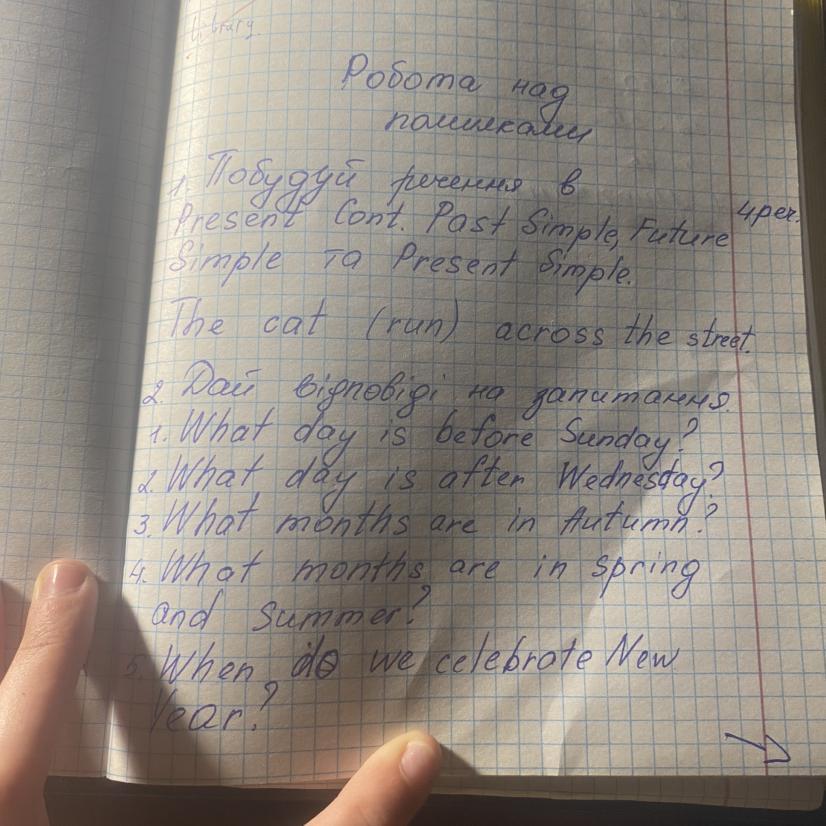 Library
Робота над
помилками
1. Побудуй речення в
4 реч.
Present Cont. Past Simple, Future
Simple та Present Simple.
The cat (run) across the street.
2. Дай відповіді на запитання.
1. What day is before Sunday?
2. What day is after Wednesday?
3. What months are in Autumn?
4. What months are in spring
and summer?
5. When do we celebrate New
Year?